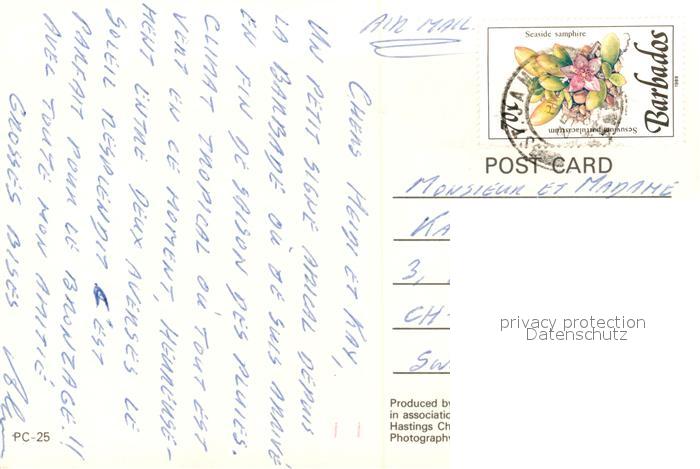 CHERS HEIDI ET KAY,
UN PETIT SIGNE AMICAL DEPUIS
LA BARBADE OÙ JE SUIS ARRIVÉ
EN FIN DE SAISON DES PLUIES.
CLIMAT TROPICAL OÙ TOUT EST
VERT EN CE MOMENT, HEUREUSE-
MENT ENTRE DEUX AVERSES LE
SOLEIL RESPLENDIT C'EST
PARFAIT POUR LE BRONZAGE!!
AVEC TOUTE MON AMITIÉ
GROSSES BISES
PC-25
AIR MAIL
Seaside samphire
Barbados
1989
Sesuvium portulacastrum
POST CARD
MONSIEUR ET MADAME
KA
3,
CH-
SW
privacy protection
Datenschutz
Produced by
in associatio
Hastings Ch
Photography